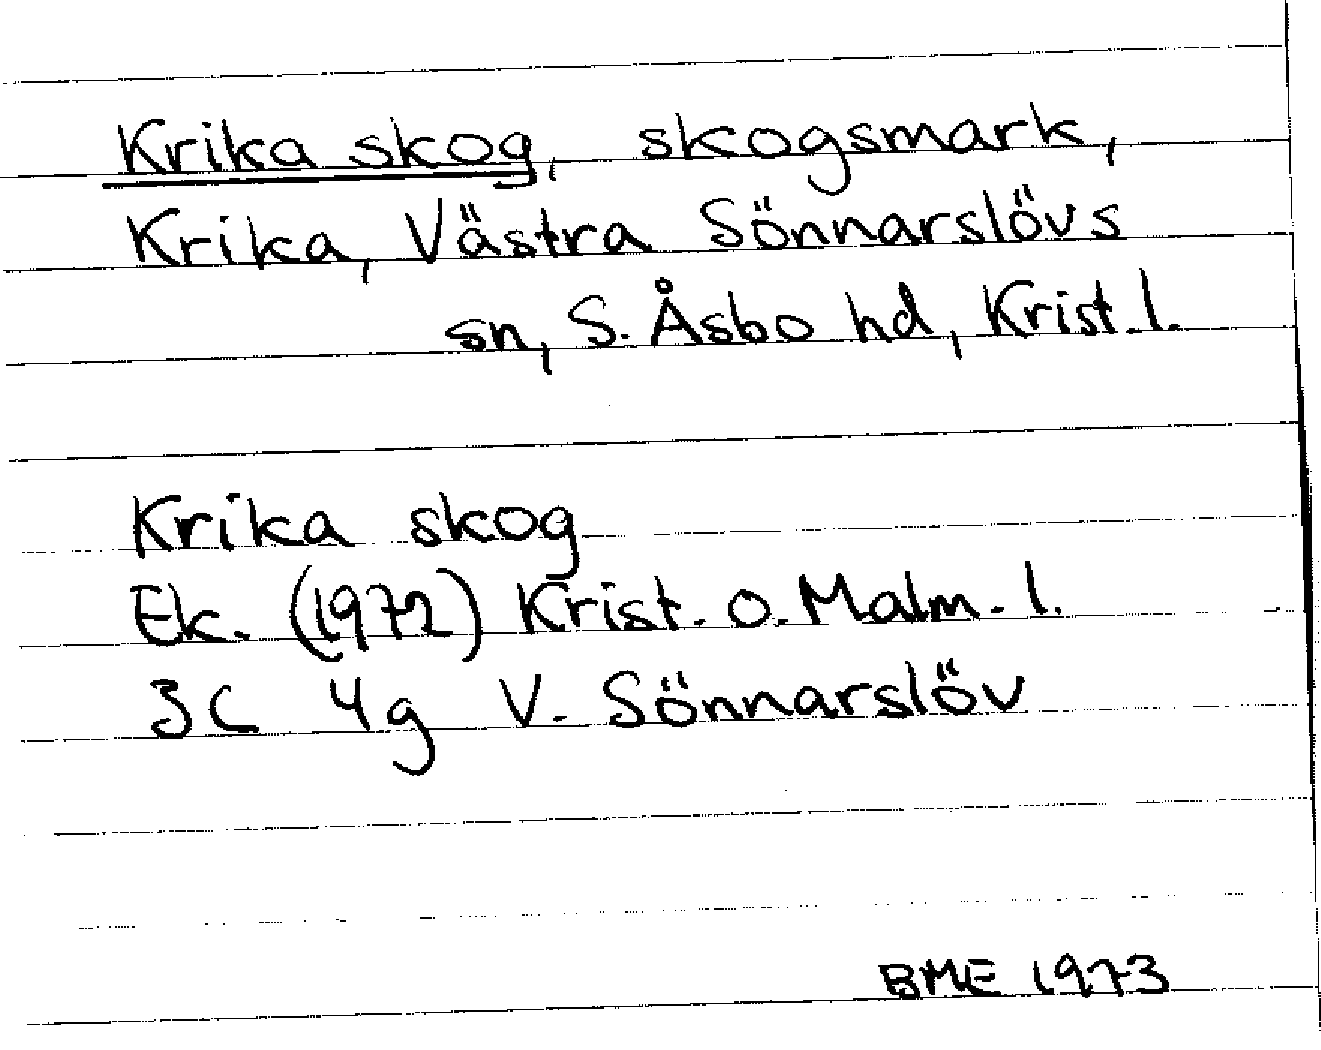 Krika skog, skogsmark,
Krika, Västra Sönnarslövs
sn, S. Åsbo hd, Krist. l.
Krika skog
Ek. (1972) Krist. o. Malm. l.
3C 4g V. Sönnarslöv
BME 1973